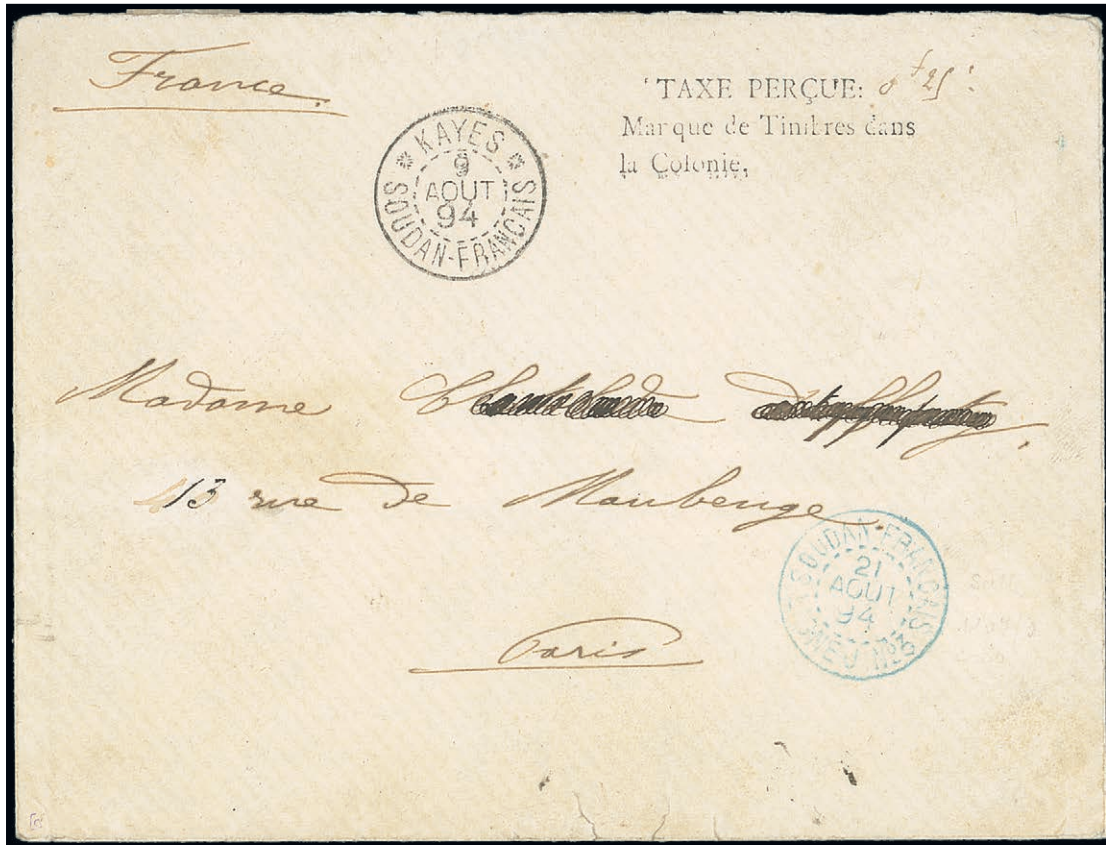 France.
TAXE PERÇUE: 0f25c
Marque de Timbres dans
la Colonie,
KAYES
9
AOUT
94
SOUDAN-FRANCAIS
Madame
413 rue de Maubeuge
SOUDAN-FRANCAIS
21
AOUT
94
Nº3
Paris